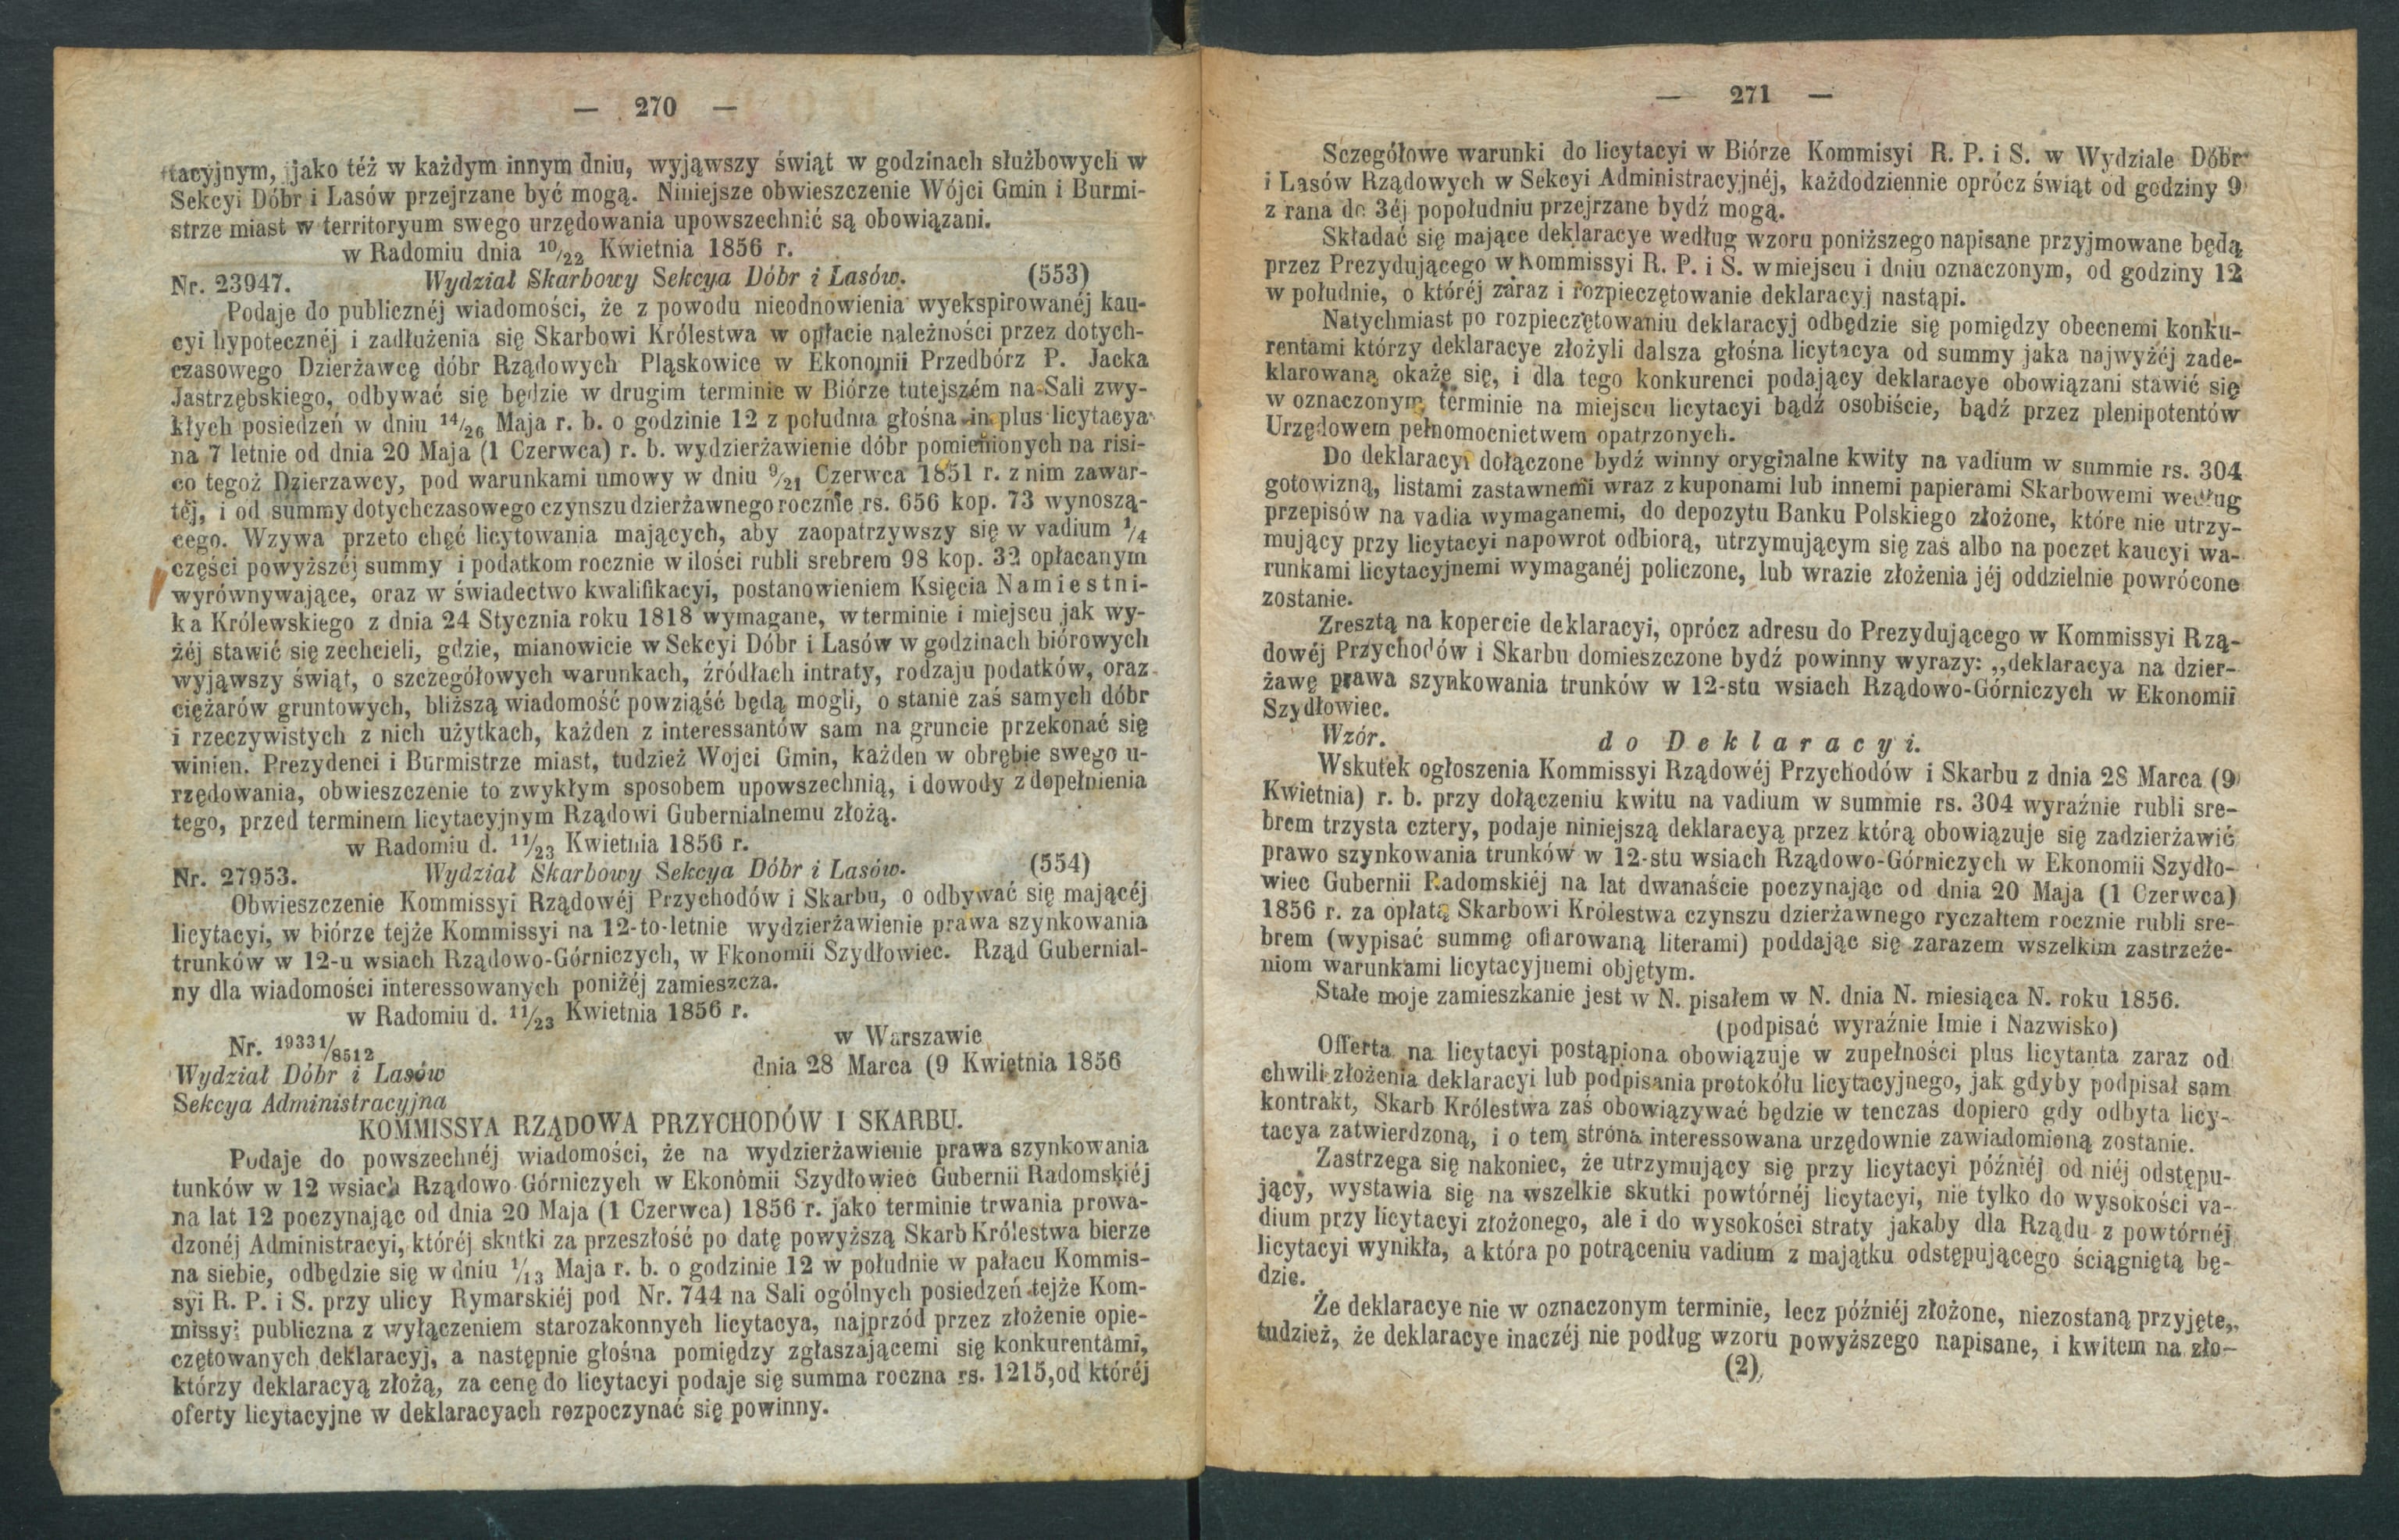 — 270 —
tacyjnym, jako téż w każdym innym dniu, wyjąwszy świąt w godzinach służbowych w
Sekcyi Dóbr i Lasów przejrzane być mogą. Niniejsze obwieszczenie Wójci Gmin i Burmi-
strze miast w territoryum swego urzędowania upowszechnić są obowiązani.
w Radomiu dnia 10/22 Kwietnia 1856 r.
Nr. 23947. Wydział Skarbowy Sekcya Dóbr i Lasów. (553)
Podaje do publicznéj wiadomości, że z powodu nieodnowienia wyekspirowanéj kau-
cyi hypotecznéj i zadłużenia się Skarbowi Królestwa w opłacie należności przez dotych-
czasowego Dzierżawcę dóbr Rządowych Pląskowice w Ekonomii Przedbórz P. Jacka
Jastrzębskiego, odbywać się będzie w drugim terminie w Biórze tutejszém na Sali zwy-
kłych posiedzeń w dniu 14/26 Maja r. b. o godzinie 12 z południa głośna in plus licytacya
na 7 letnie od dnia 20 Maja (1 Czerwca) r. b. wydzierżawienie dóbr pomienionych na risi-
co tegoż Dzierzawcy, pod warunkami umowy w dniu 9/21 Czerwca 1851 r. z nim zawar-
téj, i od summy dotychczasowego czynszu dzierżawnego rocznie rs. 656 kop. 73 wynoszą-
cego. Wzywa przeto chęć licytowania mających, aby zaopatrzywszy się w vadium 1/4
części powyższéj summy i podatkom rocznie w ilości rubli srebrem 98 kop. 32 opłacanym
wyrównywające, oraz w świadectwo kwalifikacyi, postanowieniem Księcia Namiestni-
ka Królewskiego z dnia 24 Stycznia roku 1818 wymagane, w terminie i miejscu jak wy-
żéj stawić się zechcieli, gdzie, mianowicie w Sekcyi Dóbr i Lasów w godzinach biórowych
wyjąwszy świąt, o szczegółowych warunkach, źródłach intraty, rodzaju podatków, oraz
ciężarów gruntowych, bliższą wiadomość powziąść będą mogli, o stanie zaś samych dóbr
i rzeczywistych z nich użytkach, każden z interessantów sam na gruncie przekonać się
winien. Prezydenci i Burmistrze miast, tudzież Wojci Gmin, każden w obrębie swego u-
rzędowania, obwieszczenie to zwykłym sposobem upowszechnią, i dowody z dopełnienia
tego, przed terminem licytacyjnym Rządowi Gubernialnemu złożą.
w Radomiu d. 11/23 Kwietnia 1856 r.
Nr. 27953. Wydział Skarbowy Sekcya Dóbr i Lasów. (554)
Obwieszczenie Kommissyi Rządowéj Przychodów i Skarbu, o odbywać się mającéj
licytacyi, w biórze tejże Kommissyi na 12-to-letnie wydzierżawienie prawa szynkowania
trunków w 12-u wsiach Rządowo-Górniczych, w Ekonomii Szydłowiec. Rząd Gubernial-
ny dla wiadomości interessowanych poniżéj zamieszcza.
w Radomiu d. 11/23 Kwietnia 1856 r.
Nr. 19331/8512
w Warszawie
Wydział Dóbr i Lasów
dnia 28 Marca (9 Kwiętnia 1856
Sekcya Administracyjna
KOMMISSYA RZĄDOWA PRZYCHODÓW I SKARBU.
Podaje do powszechnéj wiadomości, że na wydzierżawienie prawa szynkowania
tunków w 12 wsiach Rządowo Górniczych w Ekonómii Szydłowiec Gubernii Radomskiéj
na lat 12 poczynając od dnia 20 Maja (1 Czerwca) 1856 r. jako terminie trwania prowa-
dzonéj Administracyi, któréj skutki za przeszłość po datę powyższą Skarb Królestwa bierze
na siebie, odbędzie się w dniu 1/13 Maja r. b. o godzinie 12 w południe w pałacu Kommis-
syi R. P. i S. przy ulicy Rymarskiéj pod Nr. 744 na Sali ogólnych posiedzeń tejże Kom-
missyi publiczna z wyłączeniem starozakonnych licytacya, najprzód przez złożenie opie-
czętowanych deklaracyj, a następnie głośna pomiędzy zgłaszającemi się konkurentami,
którzy deklaracyą złożą, za cenę do licytacyi podaje się summa roczna rs. 1215, od któréj
oferty licytacyjne w deklaracyach rozpoczynać się powinny.
— 271 —
Sczegółowe warunki do licytacyi w Biórze Kommisyi R. P. i S. w Wydziale Dóbr
i Lasów Rządowych w Sekcyi Administracyjnéj, każdodziennie oprócz świąt od godziny 9
z rana do 3éj popołudniu przejrzane bydź mogą.
Składać się mające deklaracye według wzoru poniższego napisane przyjmowane będą
przez Prezydującego w Kommissyi R. P. i S. w miejscu i dniu oznaczonym, od godziny 12
w południe, o któréj zaraz i rozpieczętowanie deklaracyj nastąpi.
Natychmiast po rozpieczętowaniu deklaracyj odbędzie się pomiędzy obecnemi konku-
rentami którzy deklaracye złożyli dalsza głośna licytacya od summy jaka najwyżéj zade-
klarowaną okażę się, i dla tego konkurenci podający deklaracye obowiązani stawić się
w oznaczonym terminie na miejscu licytacyi bądź osobiście, bądź przez plenipotentów
Urzędowem pełnomocnictwem opatrzonych.
Do deklaracyi dołączone bydź winny oryginalne kwity na vadium w summie rs. 304
gotowizną, listami zastawnemi wraz z kuponami lub innemi papierami Skarbowemi według
przepisów na vadia wymaganemi, do depozytu Banku Polskiego złożone, które nie utrzy-
mujący przy licytacyi napowrot odbiorą, utrzymującym się zaś albo na poczet kaucyi wa-
runkami licytacyjnemi wymaganéj policzone, lub wrazie złożenia jéj oddzielnie powrócone
zostanie.
Zresztą na kopercie deklaracyi, oprócz adresu do Prezydującego w Kommissyi Rzą-
dowéj Przychodów i Skarbu domieszczone bydź powinny wyrazy: „deklaracya na dzier-
żawę prawa szynkowania trunków w 12-stu wsiach Rządowo-Górniczych w Ekonomii
Szydłowiec.
Wzór. do Deklaracyi.
Wskutek ogłoszenia Kommissyi Rządowéj Przychodów i Skarbu z dnia 28 Marca (9
Kwietnia) r. b. przy dołączeniu kwitu na vadium w summie rs. 304 wyraźnie rubli sre-
brem trzysta cztery, podaje niniejszą deklaracyą przez którą obowiązuje się zadzierżawić
prawo szynkowania trunków w 12-stu wsiach Rządowo-Górniczych w Ekonomii Szydło-
wiec Gubernii Radomskiéj na lat dwanaście poczynając od dnia 20 Maja (1 Czerwca)
1856 r. za opłatą Skarbowi Królestwa czynszu dzierżawnego ryczałtem rocznie rubli sre-
brem (wypisać summę ofiarowaną literami) poddając się zarazem wszelkim zastrzeże-
niom warunkami licytacyjnemi objętym.
Stałe moje zamieszkanie jest w N. pisałem w N. dnia N. miesiąca N. roku 1856.
(podpisać wyraźnie Imie i Nazwisko)
Offerta na licytacyi postąpiona obowiązuje w zupełności plus licytanta zaraz od
chwili złożenia deklaracyi lub podpisania protokółu licytacyjnego, jak gdyby podpisał sam
kontrakt, Skarb Królestwa zaś obowiązywać będzie w tenczas dopiero gdy odbyta licy-
tacya zatwierdzoną, i o tem strona interessowana urzędownie zawiadomioną zostanie.
Zastrzega się nakoniec, że utrzymujący się przy licytacyi późniéj od niéj odstępu-
jący, wystawia się na wszelkie skutki powtórnéj licytacyi, nie tylko do wysokości va-
dium przy licytacyi złożonego, ale i do wysokości straty jakaby dla Rządu z powtórnéj
licytacyi wynikła, a która po potrąceniu vadium z majątku odstępującego ściągniętą bę-
dzie.
Że deklaracye nie w oznaczonym terminie, lecz późniéj złożone, niezostaną przyjęte,
tudzież, że deklaracye inaczéj nie podług wzoru powyższego napisane, i kwitem na zło-
(2)